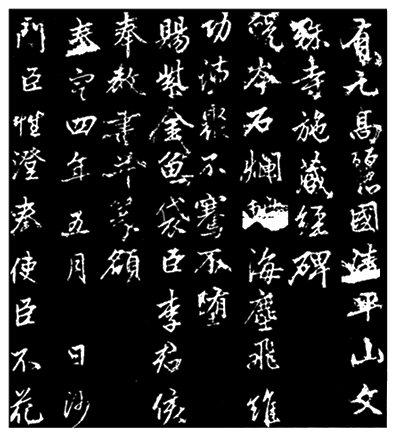 有元高麗國清平山文
殊寺施藏經碑
岑石爛海塵飛維
功德聚不騫不墮
賜紫金魚袋臣李君侅
奉教書并篆額
泰定四年五月 日沙
門臣性澄奏使臣不花